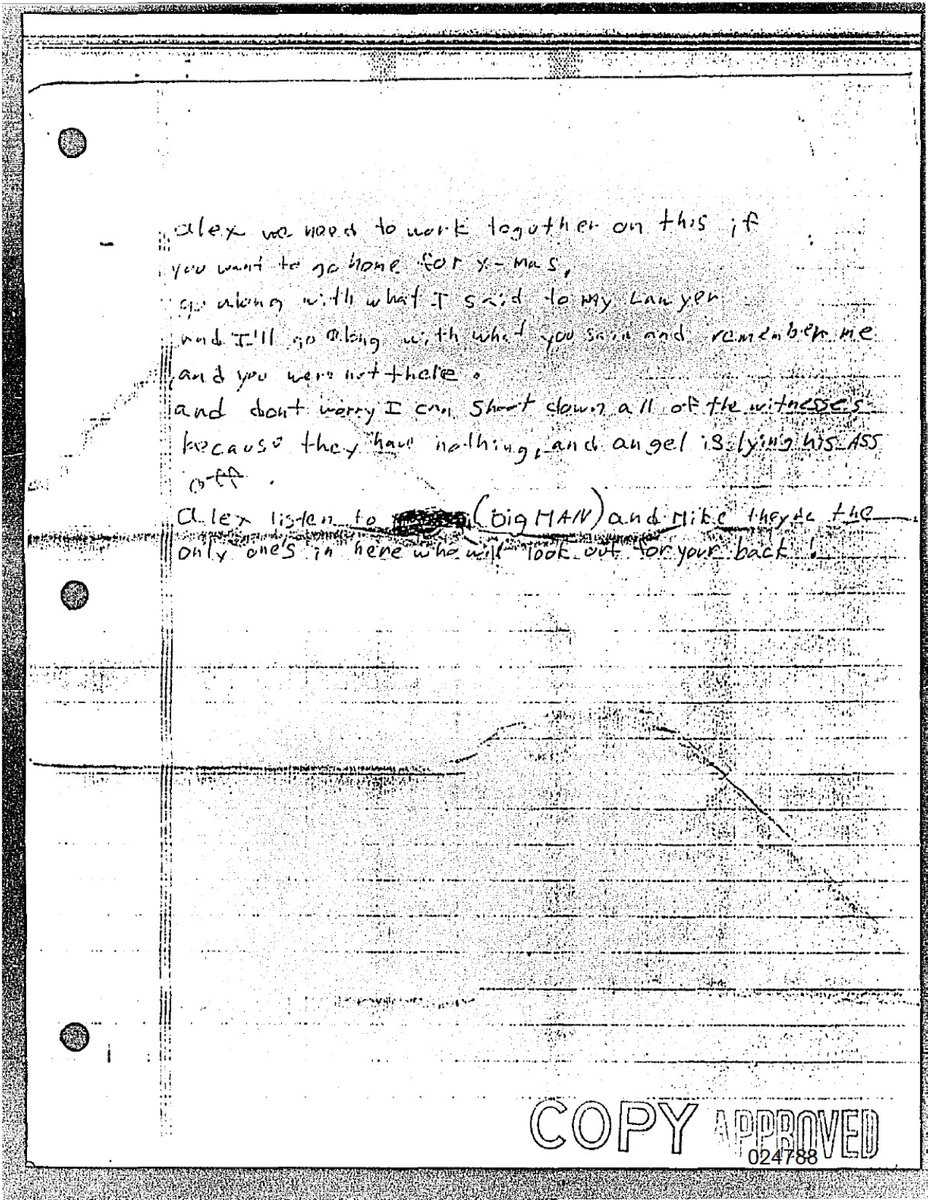 alex we need to work togather on this if
you want to go home for x-mas,
go along with what I said to my Lawyer
and I'll go along with what you said and remember me
and you were not there.
and dont worry I can shoot down all of the witnesses
because they have nothing, and angel is lying his ASS
off.
alex listen to (big MAN) and Mike they're the
only one's in here who will look out for your back!
COPY APPROVED
024788